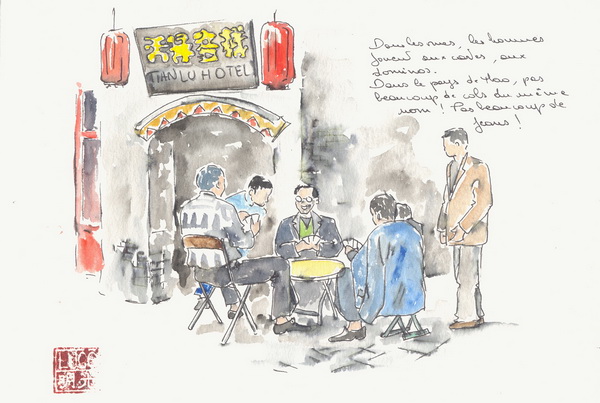 TIANLU HOTEL
Dans les rues, les hommes
jouent aux cartes, aux
dominos.
Dans le pays de Mao, pas
beaucoup de cols du même
nom ! Pas beaucoup de
jeans !